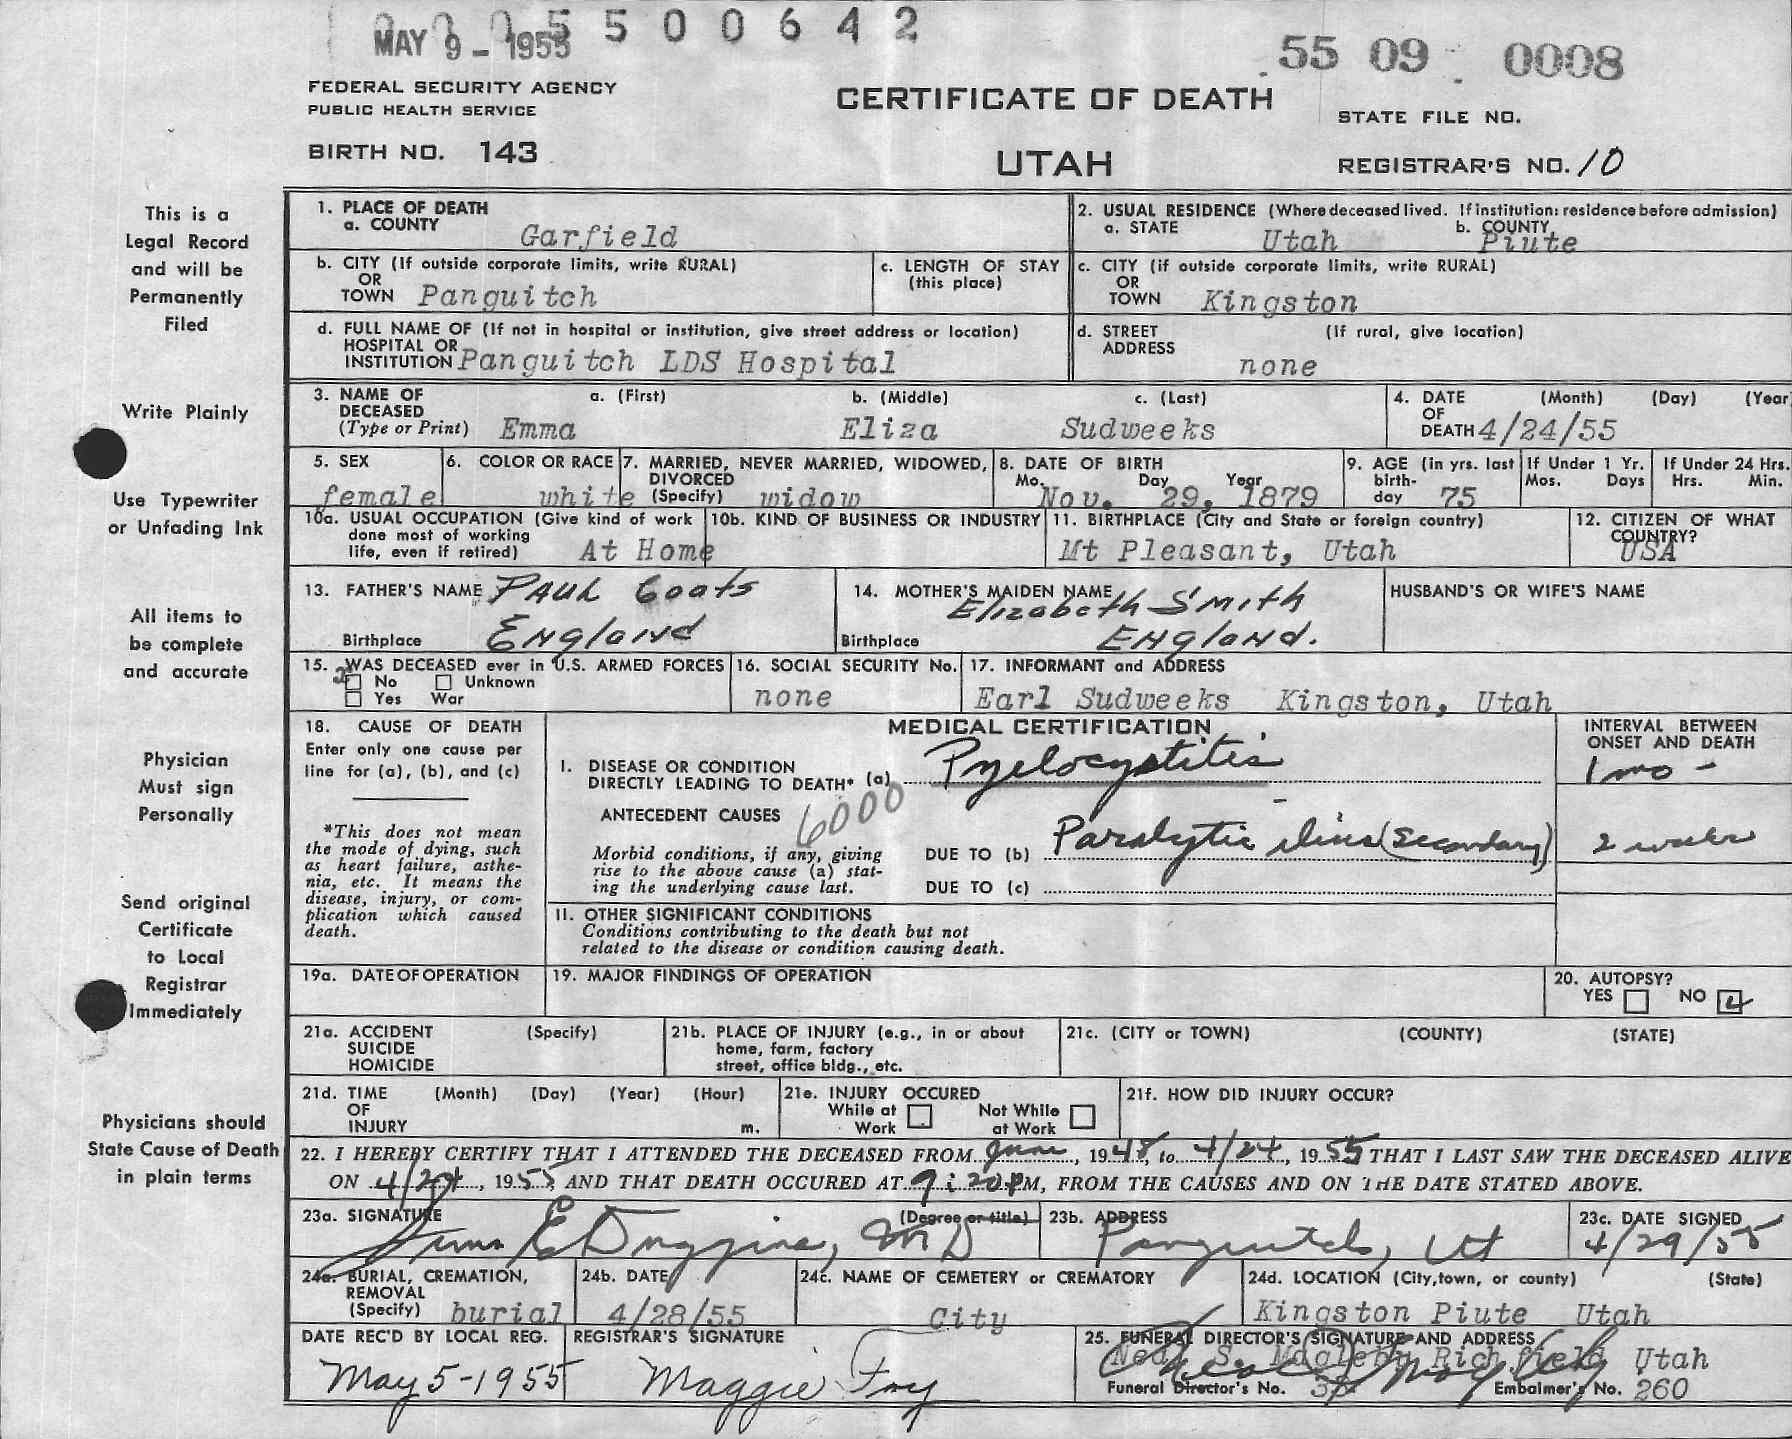 MAY 9 - 1955 5500642
55 09 0008
FEDERAL SECURITY AGENCY
PUBLIC HEALTH SERVICE
CERTIFICATE OF DEATH
STATE FILE NO.
BIRTH NO. 143
UTAH
REGISTRAR'S NO. 10
This is a
Legal Record
and will be
Permanently
Filed
Write Plainly
Use Typewriter
or Unfading Ink
All items to
be complete
and accurate
Physician
Must sign
Personally
Send original
Certificate
to Local
Registrar
Immediately
Physicians should
State Cause of Death
in plain terms
1. PLACE OF DEATH
a. COUNTY Garfield
2. USUAL RESIDENCE (Where deceased lived. If institution: residence before admission)
a. STATE Utah b. COUNTY Piute
b. CITY (If outside corporate limits, write RURAL)
OR
TOWN Panguitch
c. LENGTH OF STAY
(this place)
c. CITY (if outside corporate limits, write RURAL)
OR
TOWN Kingston
d. FULL NAME OF (If not in hospital or institution, give street address or location)
HOSPITAL OR
INSTITUTION Panguitch LDS Hospital
d. STREET (If rural, give location)
ADDRESS
none
3. NAME OF a. (First) b. (Middle) c. (Last)
DECEASED
(Type or Print) Emma Eliza Sudweeks
4. DATE (Month) (Day) (Year
OF
DEATH 4/24/55
5. SEX
female
6. COLOR OR RACE
white
7. MARRIED, NEVER MARRIED, WIDOWED,
DIVORCED
(Specify) widow
8. DATE OF BIRTH
Mo. Day Year
Nov. 29, 1879
9. AGE (in yrs. last
birth-
day 75
If Under 1 Yr.
Mos. Days
If Under 24 Hrs.
Hrs. Min.
10a. USUAL OCCUPATION (Give kind of work
done most of working
life, even if retired) At Home
10b. KIND OF BUSINESS OR INDUSTRY
11. BIRTHPLACE (City and State or foreign country)
Mt Pleasant, Utah
12. CITIZEN OF WHAT
COUNTRY?
USA
13. FATHER'S NAME PAUL Coats
Birthplace ENglaNd
14. MOTHER'S MAIDEN NAME
Elizabeth Smith
Birthplace ENglaNd.
HUSBAND'S OR WIFE'S NAME
15. WAS DECEASED ever in U.S. ARMED FORCES
x No Unknown
Yes War
16. SOCIAL SECURITY No.
none
17. INFORMANT and ADDRESS
Earl Sudweeks Kingston, Utah
18. CAUSE OF DEATH
Enter only one cause per
line for (a), (b), and (c)
*This does not mean
the mode of dying, such
as heart failure, asthe-
nia, etc. It means the
disease, injury, or com-
plication which caused
death.
MEDICAL CERTIFICATION
INTERVAL BETWEEN
ONSET AND DEATH
I. DISEASE OR CONDITION
DIRECTLY LEADING TO DEATH* (a) Pyelocystitis
1 mo -
ANTECEDENT CAUSES 6000
Morbid conditions, if any, giving
rise to the above cause (a) stat-
ing the underlying cause last.
DUE TO (b) Paralytic ileus (secondary)
2 weeks
DUE TO (c)
II. OTHER SIGNIFICANT CONDITIONS
Conditions contributing to the death but not
related to the disease or condition causing death.
19a. DATE OF OPERATION
19. MAJOR FINDINGS OF OPERATION
20. AUTOPSY?
YES NO
21a. ACCIDENT (Specify)
SUICIDE
HOMICIDE
21b. PLACE OF INJURY (e.g., in or about
home, farm, factory
street, office bldg., etc.
21c. (CITY or TOWN) (COUNTY) (STATE)
21d. TIME (Month) (Day) (Year) (Hour)
OF
INJURY m.
21e. INJURY OCCURED
While at Work Not While at Work
21f. HOW DID INJURY OCCUR?
22. I HEREBY CERTIFY THAT I ATTENDED THE DECEASED FROM June, 1948, to 4/24, 1955 THAT I LAST SAW THE DECEASED ALIVE
ON 4/24, 1955 AND THAT DEATH OCCURED AT 9:20 PM, FROM THE CAUSES AND ON THE DATE STATED ABOVE.
23a. SIGNATURE (Degree or title)
Duggins, MD
23b. ADDRESS
Panguitch, Ut
23c. DATE SIGNED
4/29/55
24a. BURIAL, CREMATION,
REMOVAL
(Specify) burial
24b. DATE
4/28/55
24c. NAME OF CEMETERY or CREMATORY
City
24d. LOCATION (City, town, or county) (State)
Kingston Piute Utah
DATE REC'D BY LOCAL REG.
May 5-1955
REGISTRAR'S SIGNATURE
Maggie Foy
25. FUNERAL DIRECTOR'S SIGNATURE AND ADDRESS
S. Magleby Richfield Utah
Funeral Director's No. Embalmer's No. 260